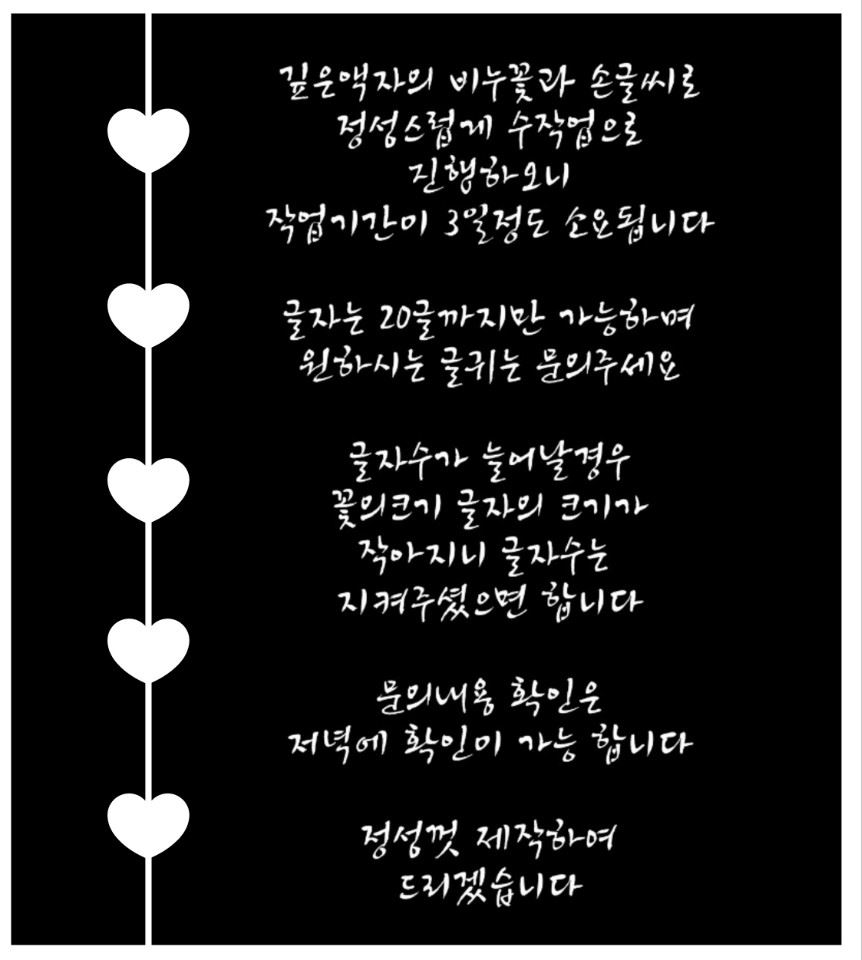 깊은액자의 비누꽃과 손글씨로
정성스럽게 수작업으로
진행하오니
작업기간이 3일정도 소요됩니다
글자는 20글까지만 가능하며
원하시는 글귀는 문의주세요
글자수가 늘어날경우
꽃의크기 글자의 크기가
작아지니 글자수는
지켜주셨으면 합니다
문의내용 확인은
저녁에 확인이 가능 합니다
정성껏 제작하여
드리겠습니다